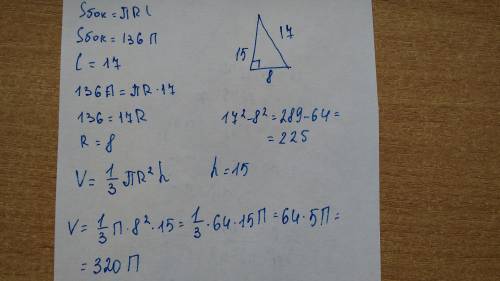 Sбок = ПRl
Sбок = 136П
l = 17
136П = ПR · 17
136 = 17R
R = 8
17
15
8
17² - 8² = 289 - 64 =
= 225
V = 1/3 ПR²h
h = 15
V = 1/3 П · 8² · 15 = 1/3 · 64 · 15П = 64 · 5П =
= 320П